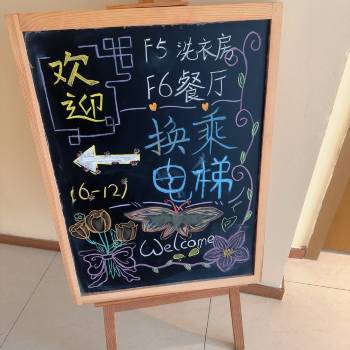 欢迎
F5 洗衣房
F6 餐厅
换乘
电梯
(6-12)
Welcome